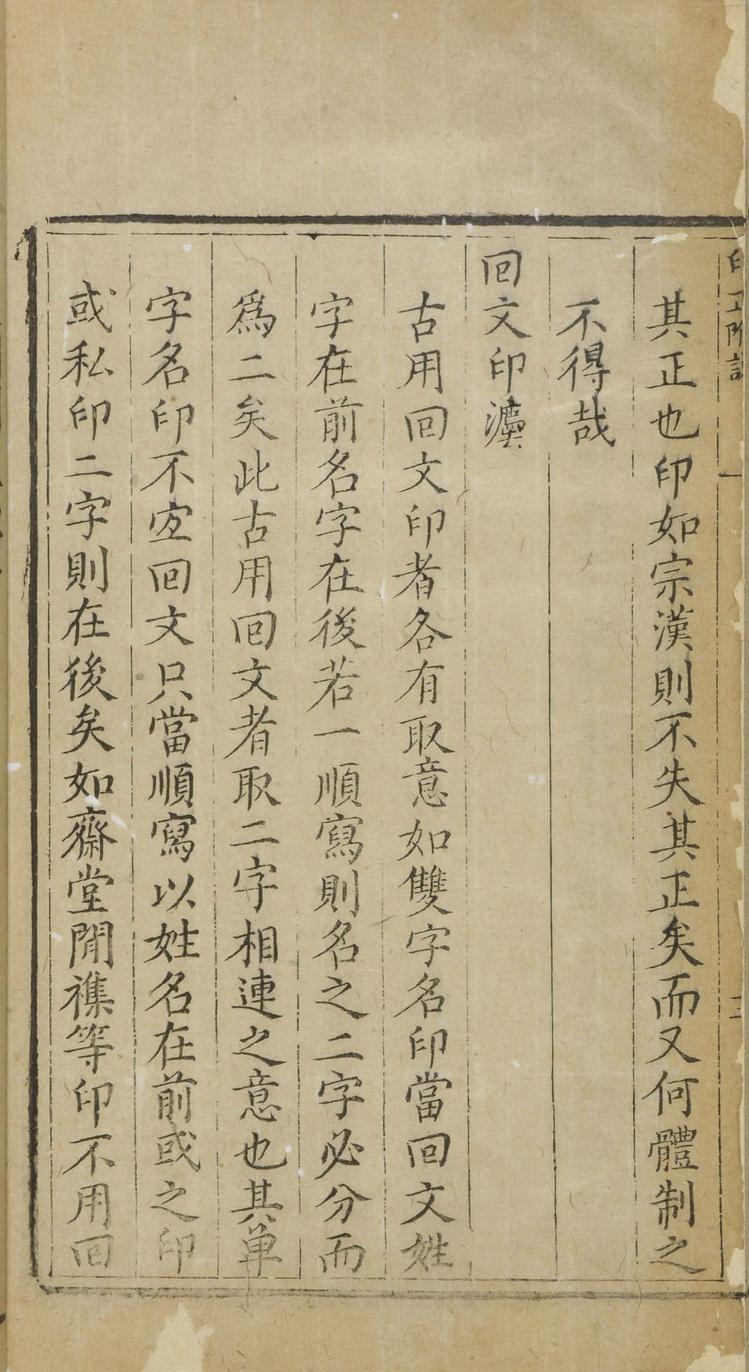 其正也印如宗漢則不失其正矣而又何體制之
不得哉
回文印灋
古用回文印者各有取意如雙字名印當回文姓
字在前名字在後若一順寫則名之二字必分而
爲二矣此古用回文者取二字相連之意也其单
字名印不宐回文只當順寫以姓名在前或之印
或私印二字則在後矣如齋堂閒襍等印不用回